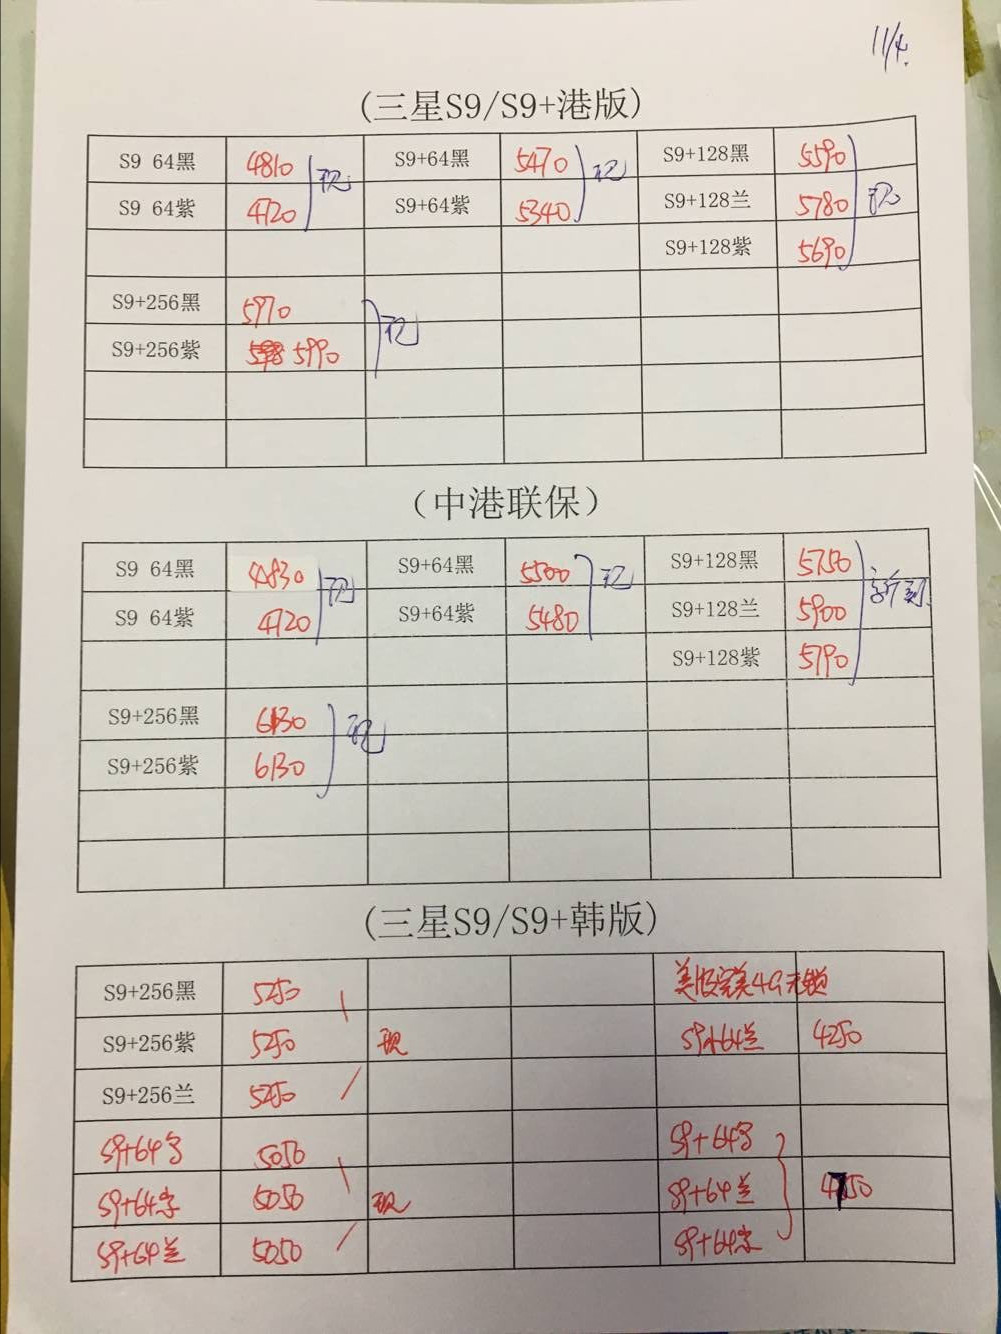 11/4.
(三星S9/S9+港版)
S9 64黑 4810 现 S9+64黑 5470 现 S9+128黑 5590
S9 64紫 4720 S9+64紫 5340 S9+128兰 5780 现
S9+128紫 5690
S9+256黑 5970 现
S9+256紫 5990
（中港联保）
S9 64黑 4830 现 S9+64黑 5500 现 S9+128黑 5750 新到
S9 64紫 4720 S9+64紫 5480 S9+128兰 5900
S9+128紫 5790
S9+256黑 6130 现
S9+256紫 6130
(三星S9/S9+韩版)
S9+256黑 5250 美版完美4G无锁
S9+256紫 5250 现 S9+64兰 4250
S9+256兰 5250
S9+64 5050 S9+64
S9+64 5050 现 S9+64兰 4750
S9+64兰 5050 S9+64